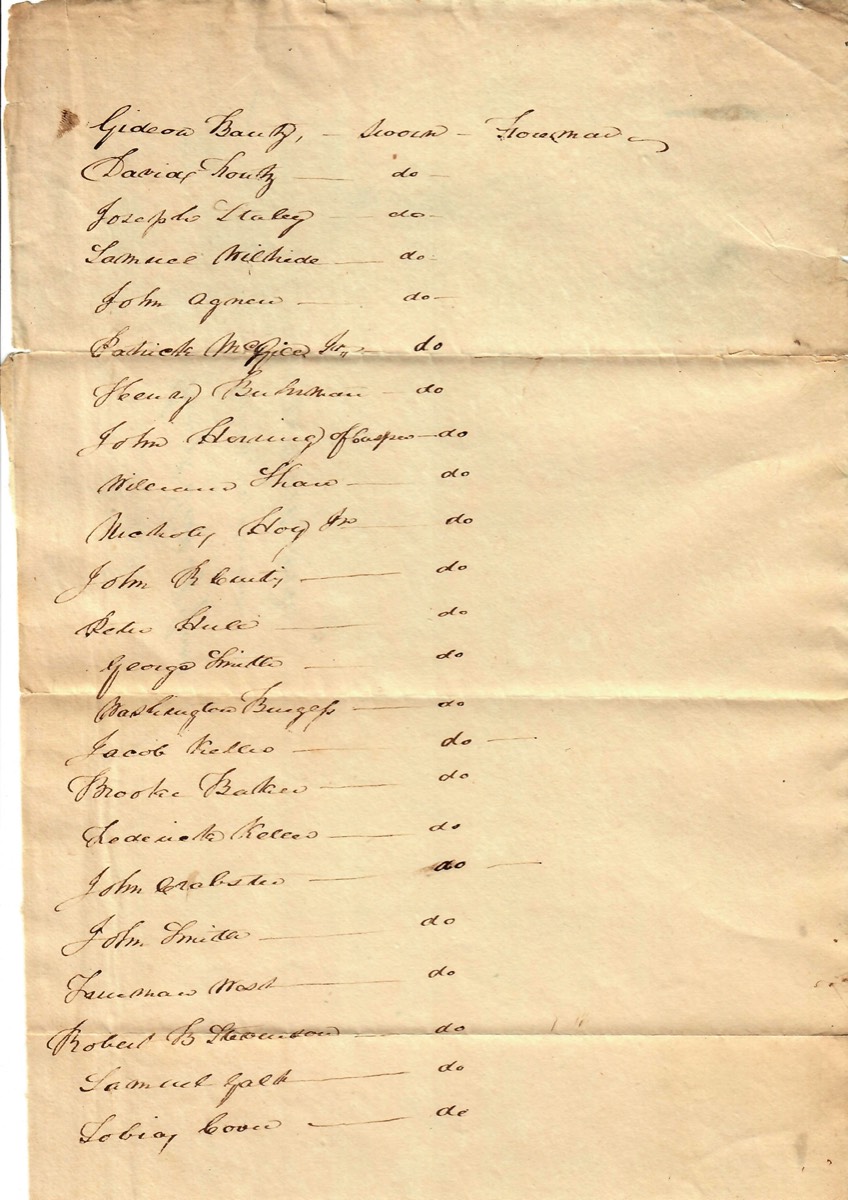 Gideon Bantz, — sworn — Foreman
David Foutz — do —
Joseph Staley — do —
Samuel Wilhide — do
John Agnew — do —
Patrick McGill Jr — do
Henry Buhrman — do
John Herring of Casper — do
William Shaw — do
Nicholas Hoy Jr do
John R Curtis — do
Peter — do
George Smith — do
Washington Burgess — do
Jacob Keller — do —
Brooke Baker — do
Frederick Keller — do
John Crabster — do —
John Smith — do
Freeman West — do
Robert B Stevenson — do
Samuel Galt — do
Tobias Cover — do